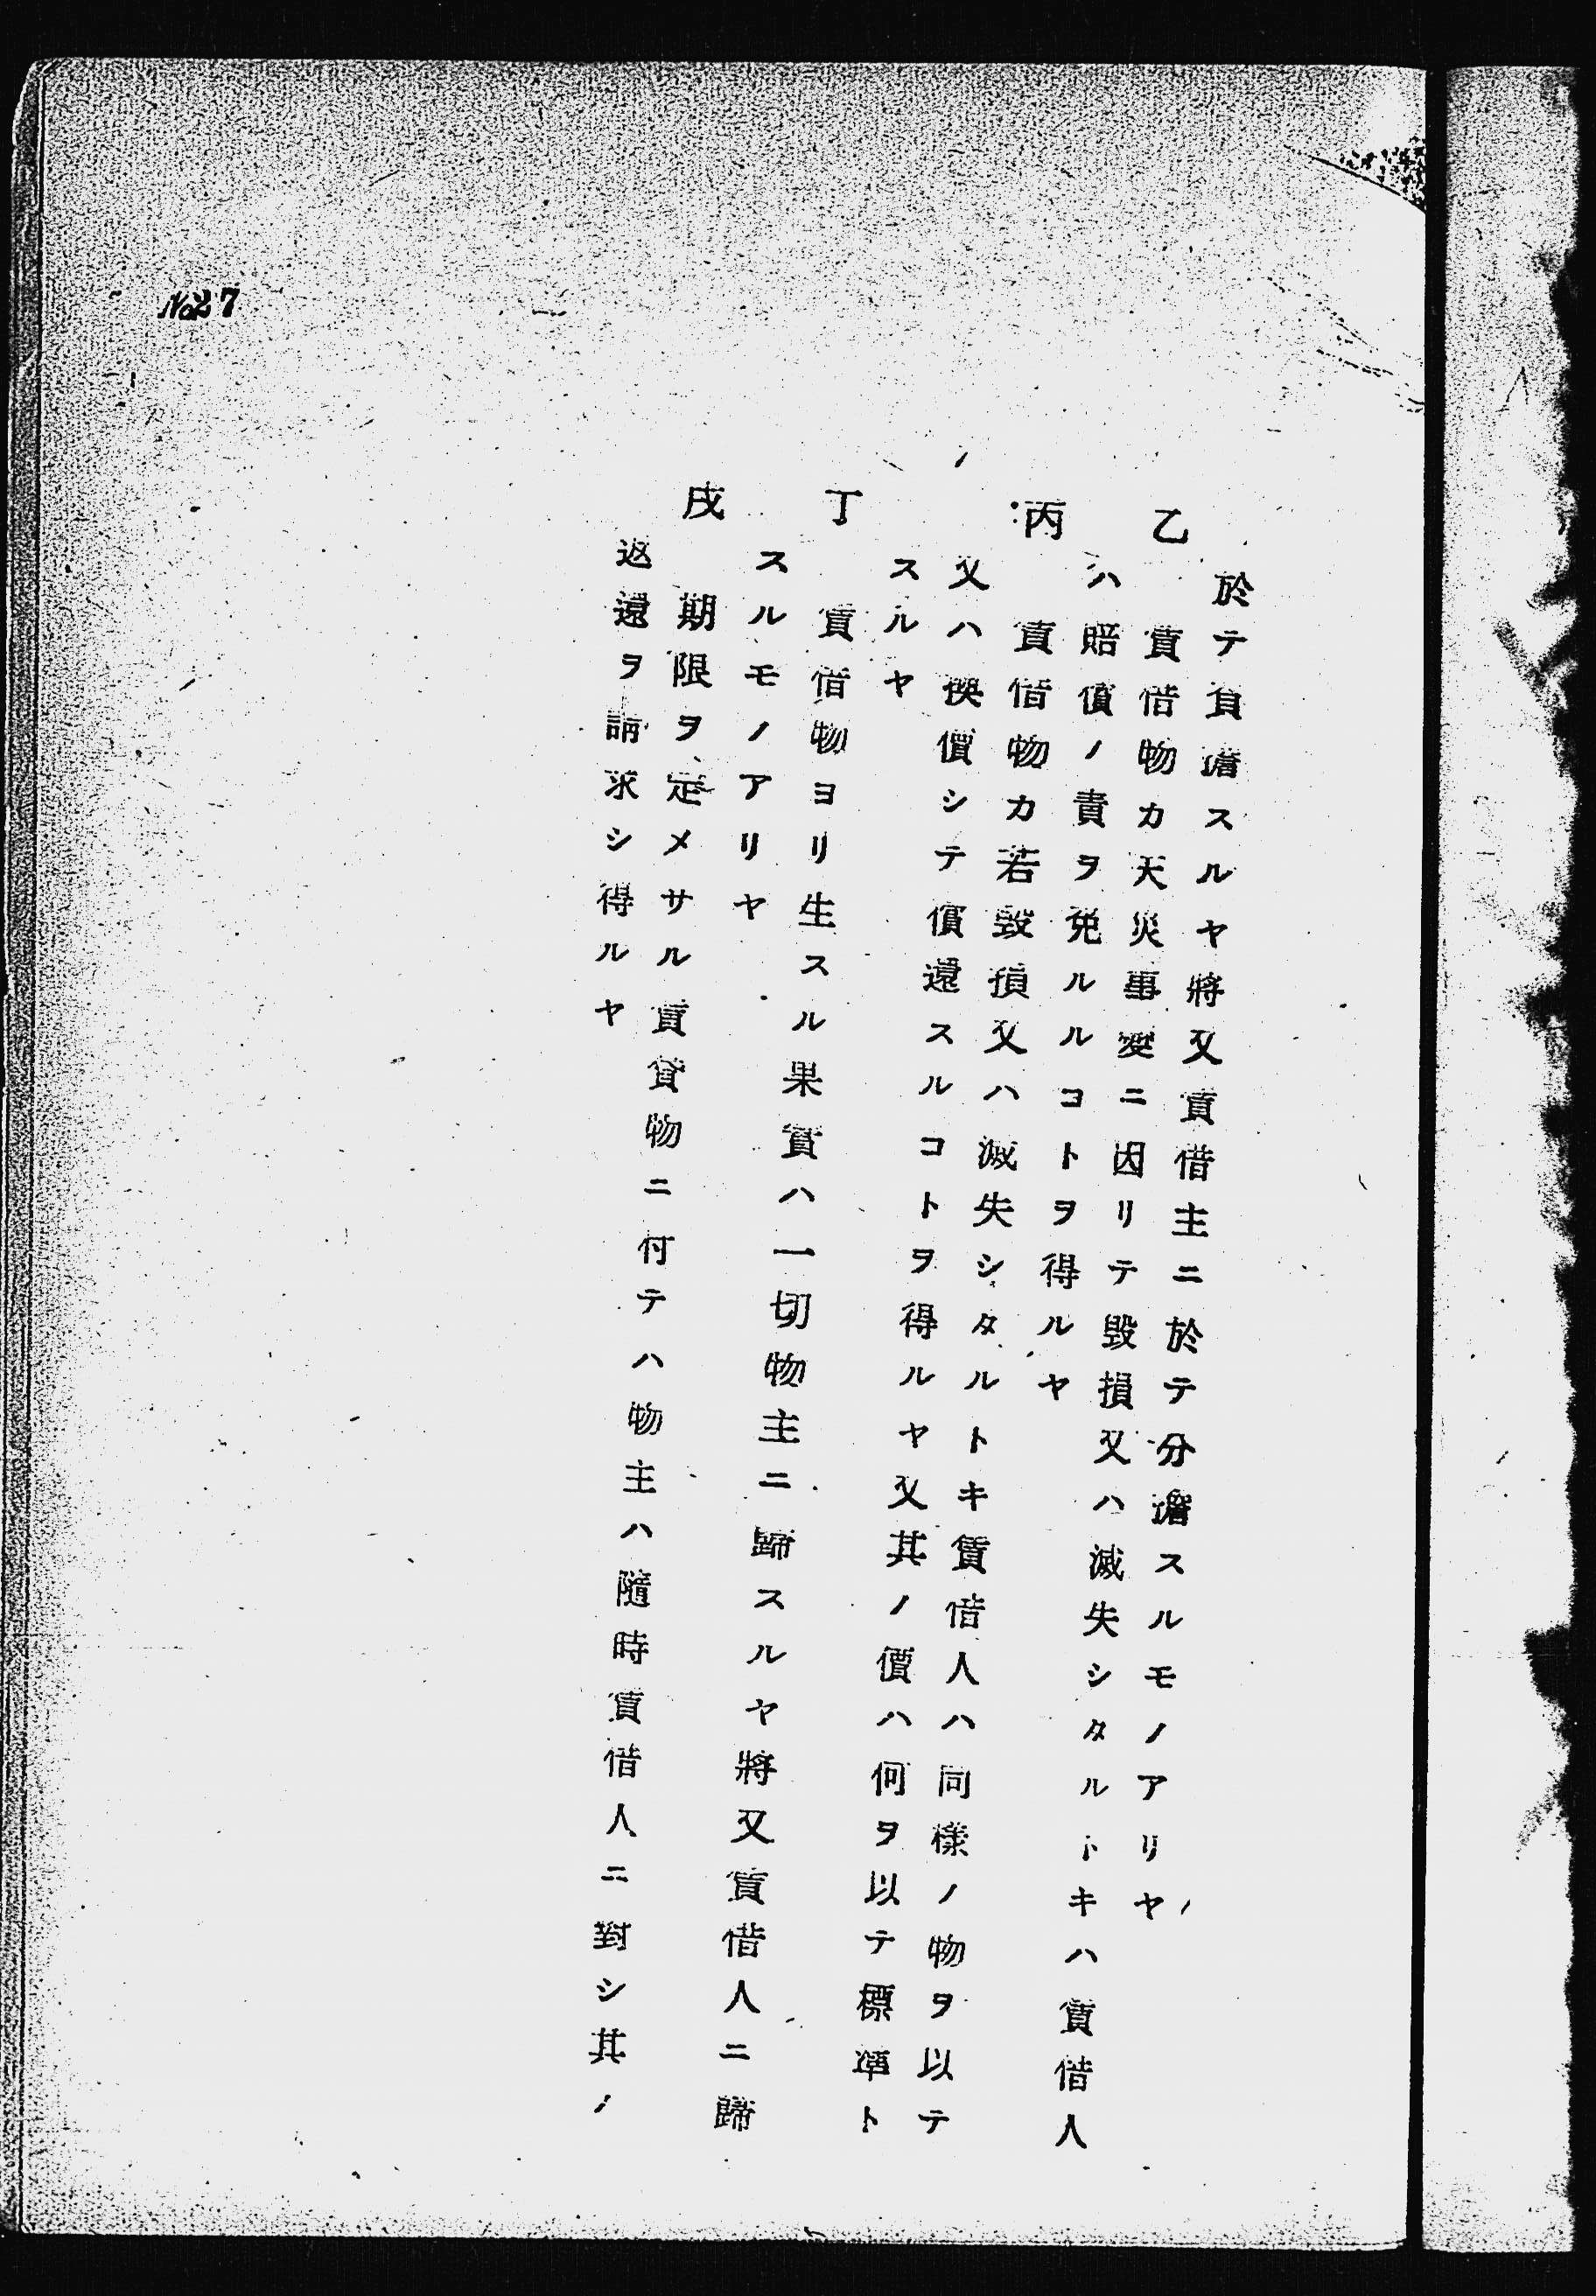 於テ負擔スルヤ將又賃借主ニ於テ分擔スルモノアリヤ
乙 賃借物カ天災事變ニ因リテ毀損又ハ滅失シタルトキハ賃借人
ハ賠償ノ責ヲ免ルルコトヲ得ルヤ
丙 賃借物カ若毀損又ハ滅失シタルトキ賃借人ハ同樣ノ物ヲ以テ
又ハ換價シテ償還スルコトヲ得ルヤ又其ノ價ハ何ヲ以テ標準ト
スルヤ
丁 賃借物ヨリ生スル果實ハ一切物主ニ歸スルヤ將又賃借人ニ歸
スルモノアリヤ
戌 期限ヲ定メサル賃貸物ニ付テハ物主ハ隨時賃借人ニ對シ其ノ
返還ヲ請求シ得ルヤ
No27